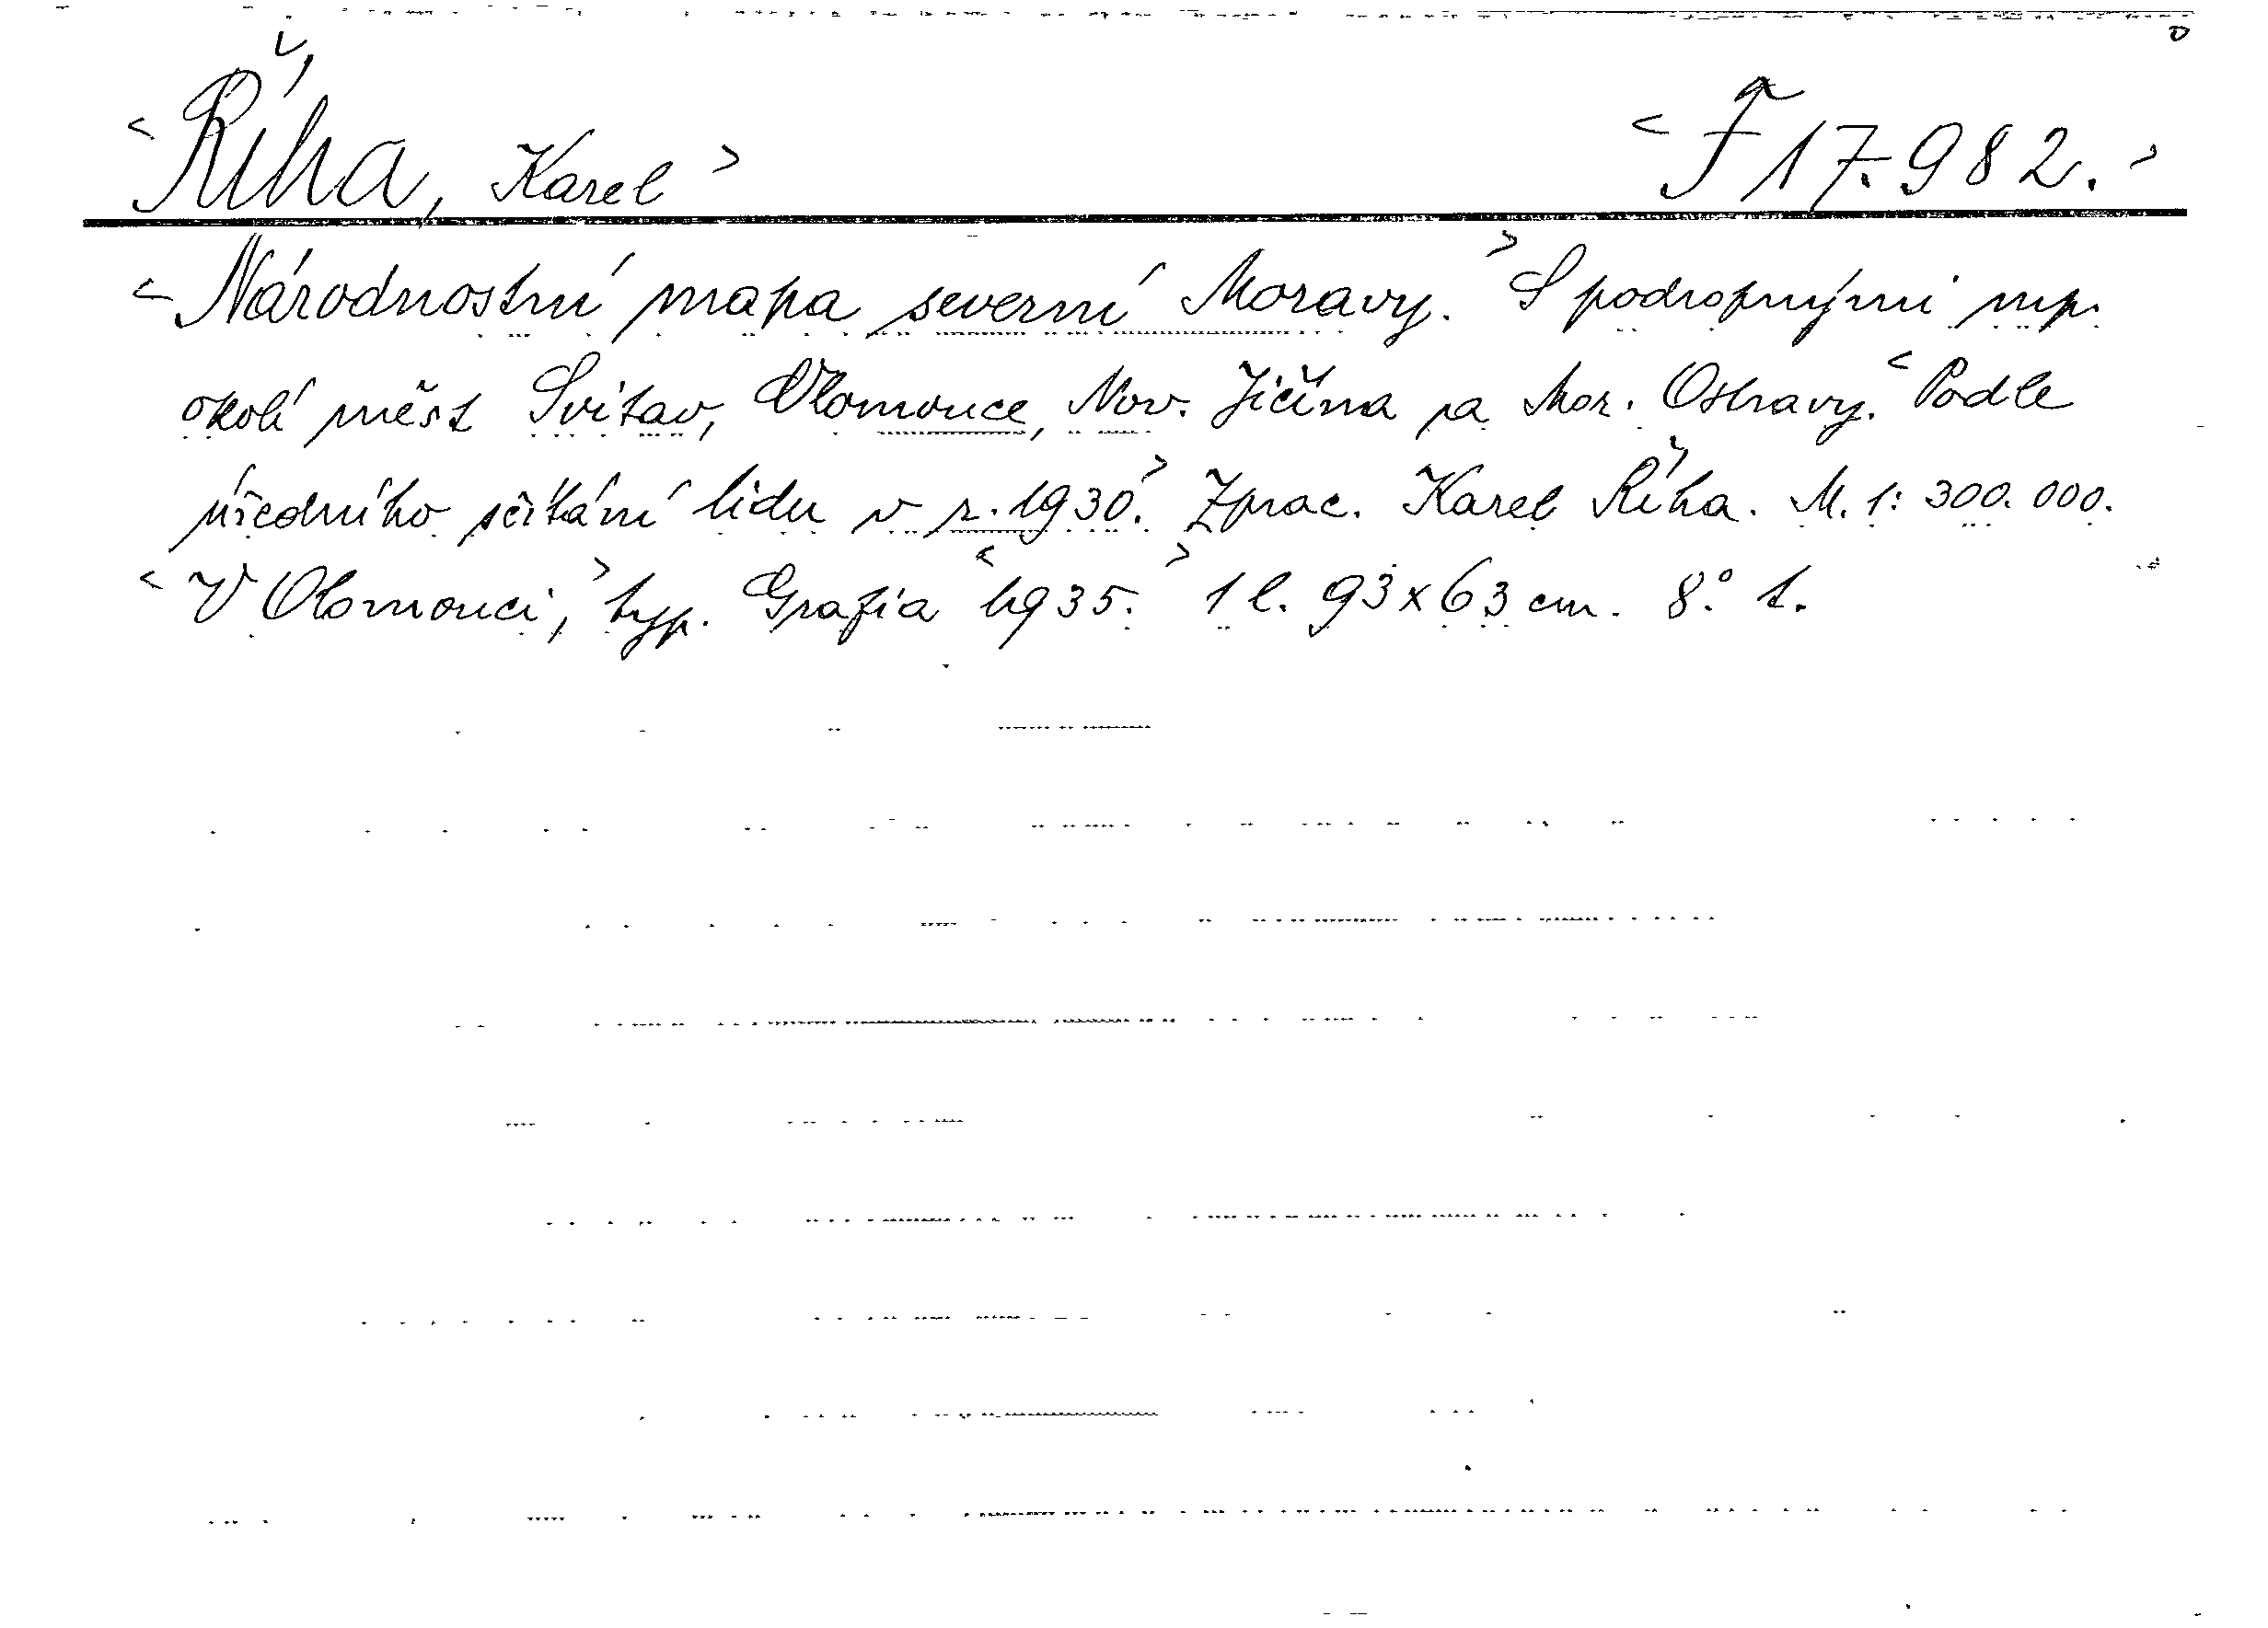 <Říha, Karel> <F 17.982.>
<Národnostní mapa severní Moravy.> S podrobnými mp.
okolí měst Svitav, Olomouce, Nov. Jičína a Mor. Ostravy. <Podle
úředního sčítání lidu v r. 1930.> Zprac. Karel Říha. M. 1:300.000.
<V Olomouci,> typ. Grafia <1935.> 1 l. 93x63 cm. 8°. t.